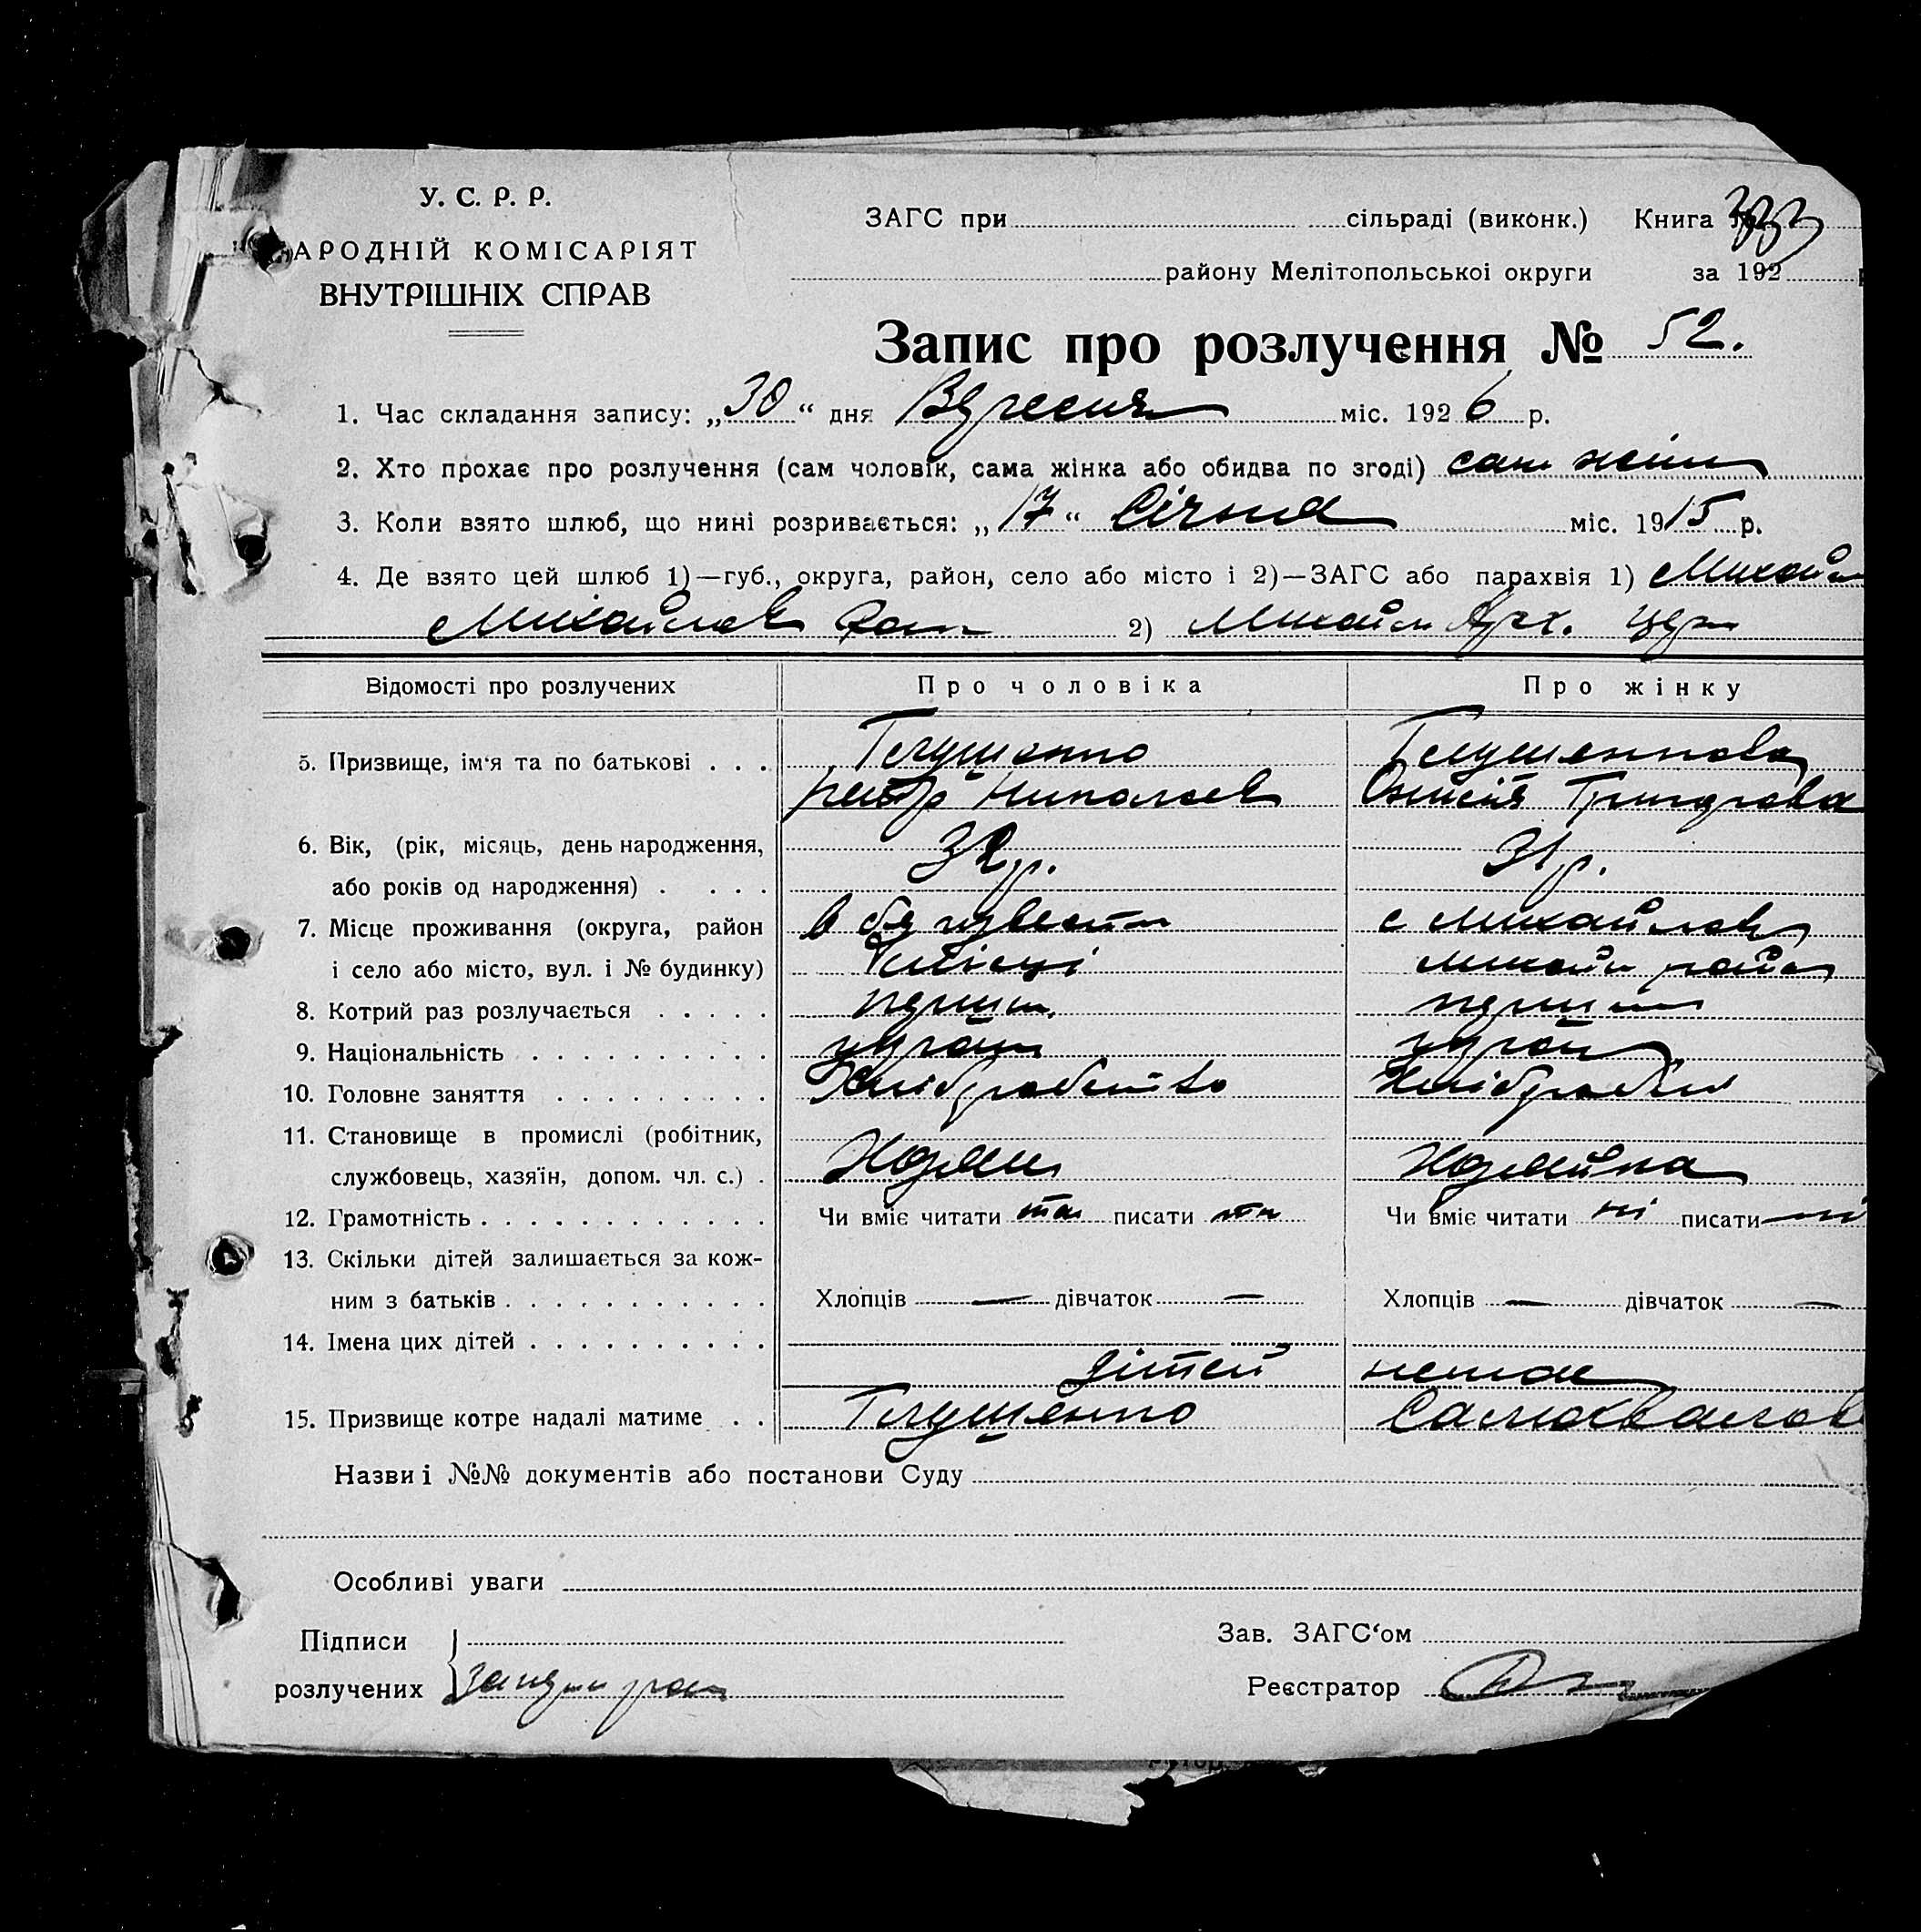 У. С. Р. Р.
АРОДНІЙ КОМІСАРІЯТ
ВНУТРІШНІХ СПРАВ
ЗАГС при сільраді (виконк.) Книга 333
району Мелітопольскоі округи за 192
Запис про розлучення № 52.
1. Час складання запису: „30“ дня Вересня міс. 1926 р.
2. Хто прохає про розлучення (сам чоловік, сама жінка або обидва по згоді) сама жінка
3. Коли взято шлюб, що нині розривається: „17“ Січня міс. 1915 р.
4. Де взято цей шлюб 1)—губ., округа, район, село або місто і 2)—ЗАГС або парахвія 1) Михайл
Михайлов 2) Михайл Арх. церк
Відомості про розлучених Про чоловіка Про жінку
5. Призвище, ім‘я та по батькові . . .
Петр Николаев
6. Вік, (рік, місяць, день народження,
або років од народження) . . . . 32 р. 31 р.
7. Місце проживання (округа, район с Михайлов
і село або місто, вул. і № будинку) михайл район
8. Котрий раз розлучається . . . . . перший перший
9. Національність . . . . . . . . . . україн україн
10. Головне заняття . . . . . . . . . Хліборобство Хлібороб
11. Становище в промислі (робітник,
службовець, хазяїн, допом. чл. с.) . Хозяин Хозяйка
12. Грамотність . . . . . . . . . . . . Чи вміє читати так писати так Чи вміє читати ні писати ні
13. Скільки дітей залишається за кож-
ним з батьків . . . . . . . . . . . Хлопців — дівчаток — Хлопців — дівчаток —
14. Імена цих дітей . . . . . . . . . .
дітей немає
15. Призвище котре надалі матиме . . Самохвалов
Назви і №№ документів або постанови Суду
Особливі уваги
Підписи Зав. ЗАГС‘ом
розлучених Реєстратор